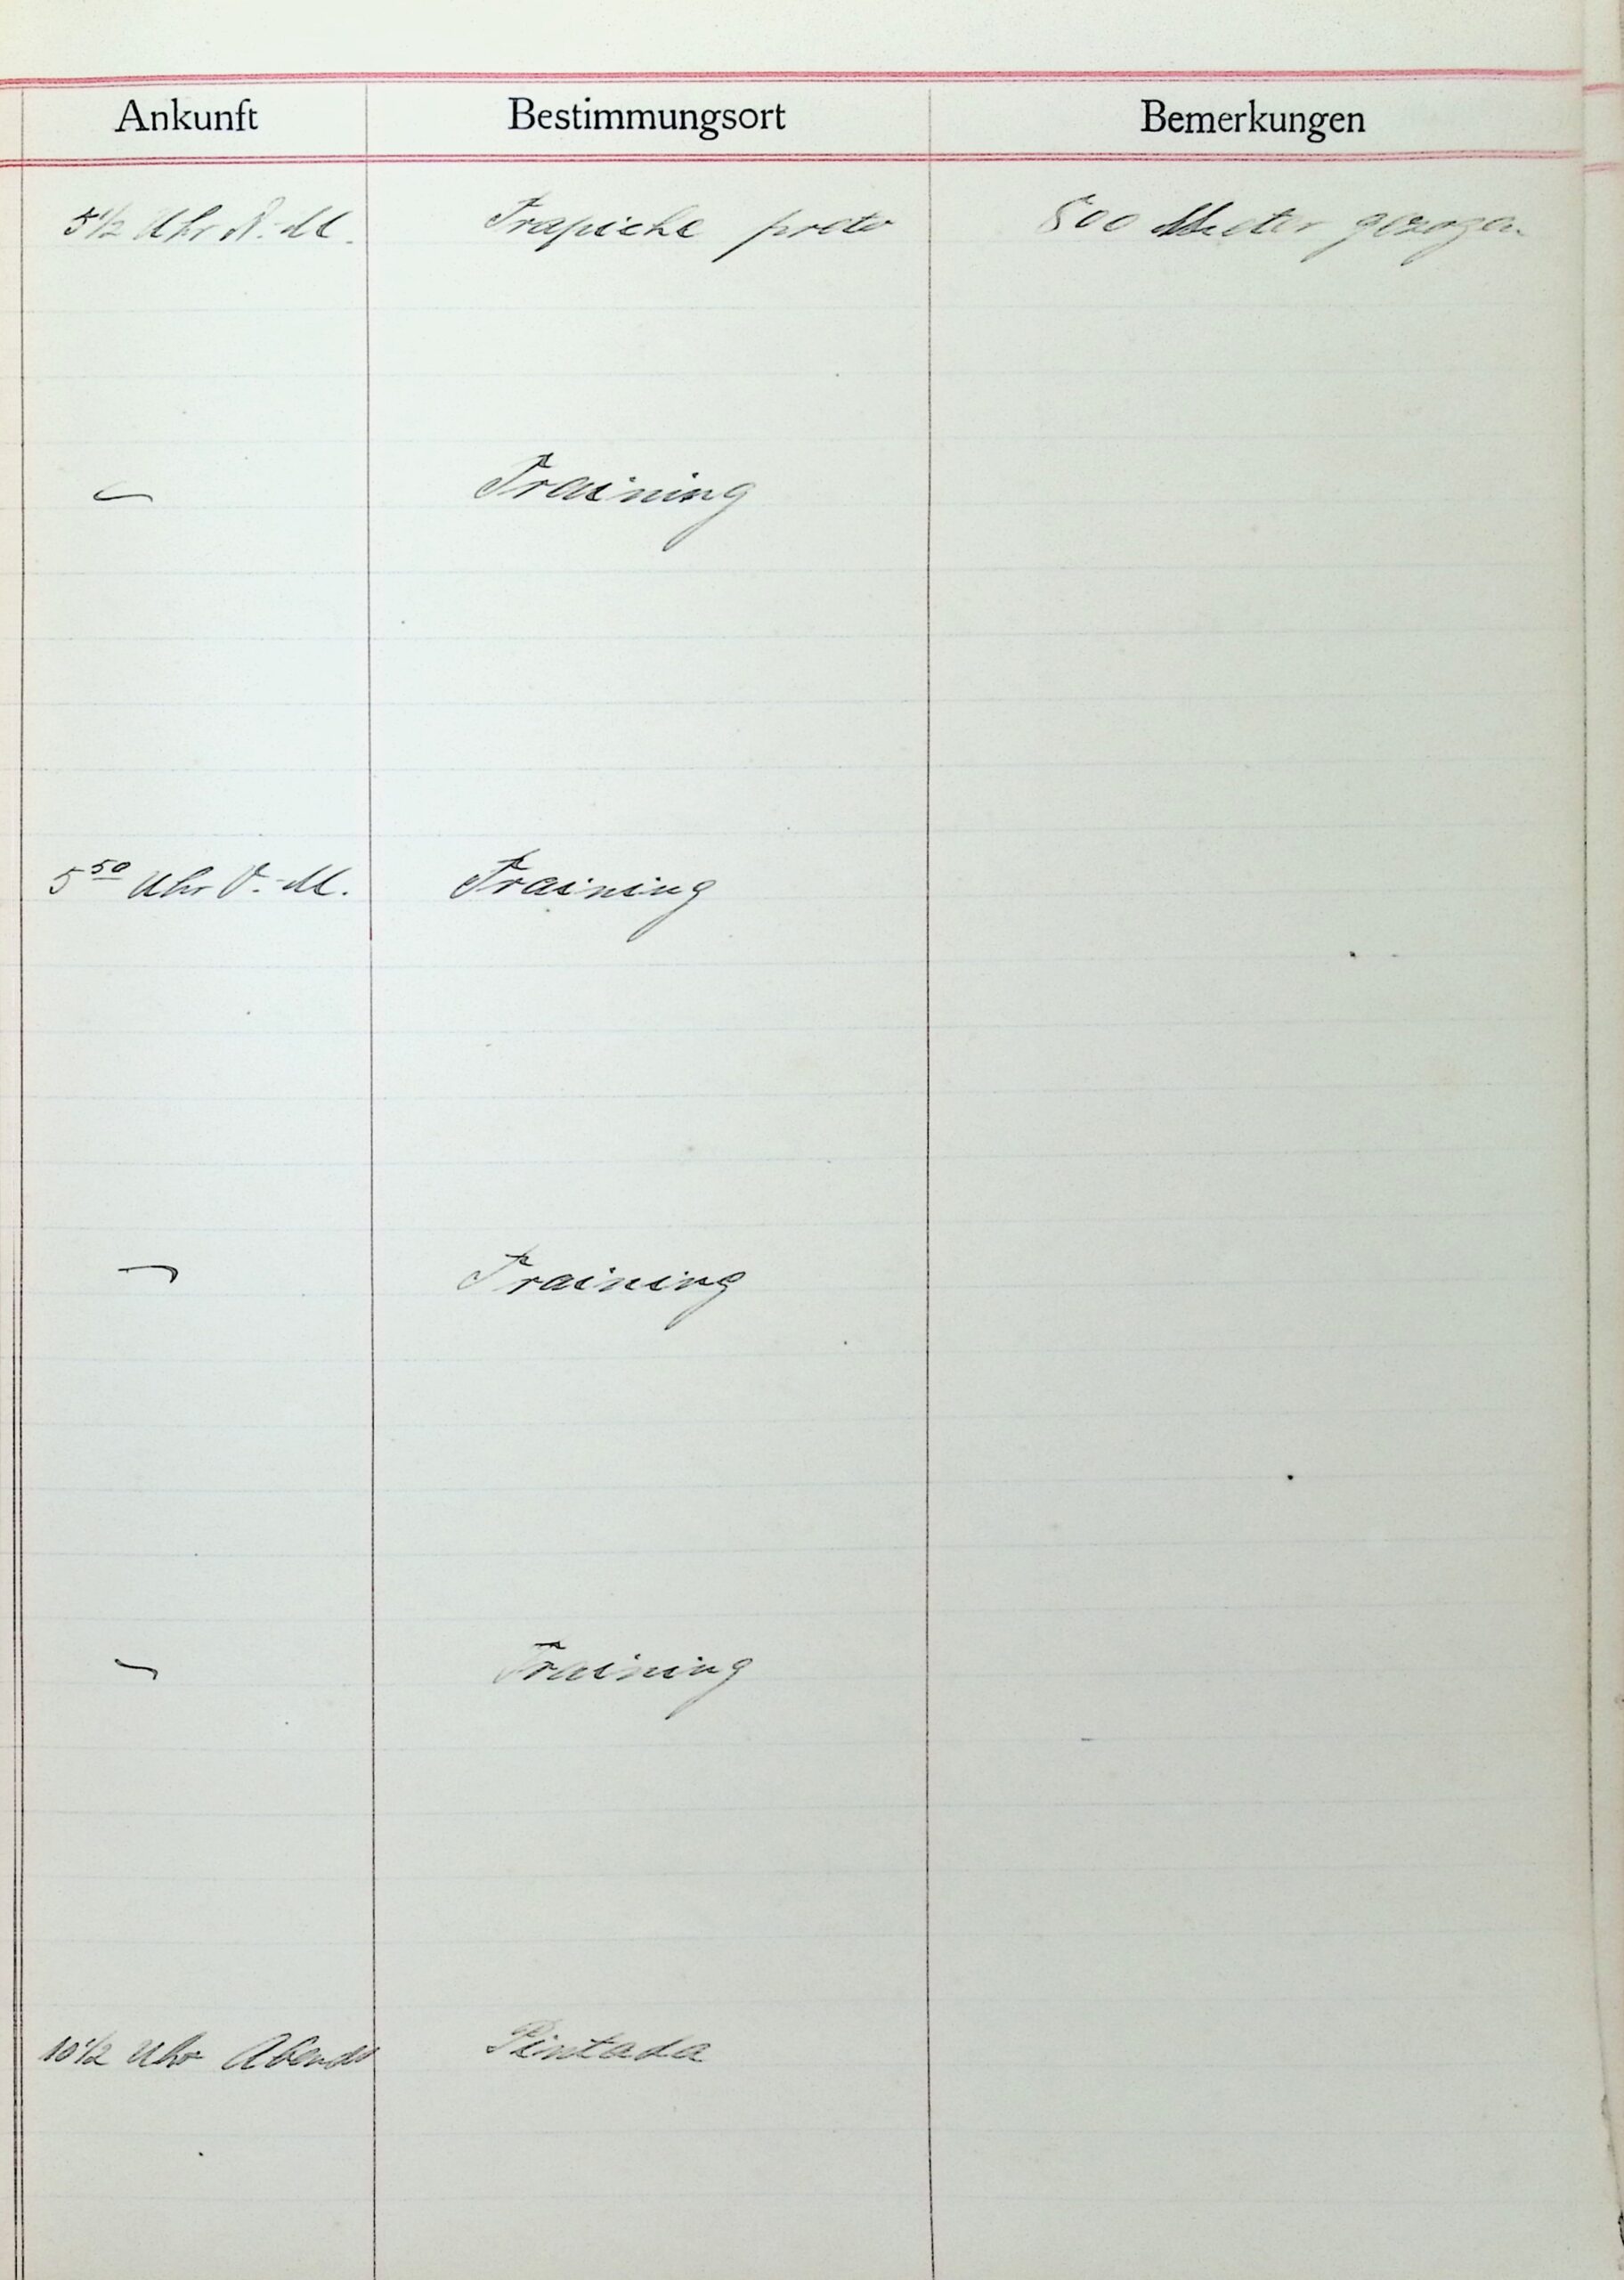 Ankunft Bestimmungsort Bemerkungen
5 1/2 Uhr N.-M. Trapiche preto 500 Meter gezogen
— Training
5 50 Uhr V.-M. Training
— Training
— Training
10 1/2 Uhr Abends Pintada